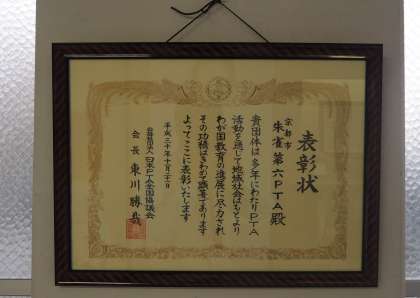 表彰状
京都市
朱雀第六PTA殿
貴団体は多年にわたりPTA
活動を通じて地域社会はもとより
わが国教育の進展に尽力され
その功績はきわめて顕著であります
よってここに表彰いたします
平成二十年十一月二十一日
社団法人日本PTA全国協議会
会長